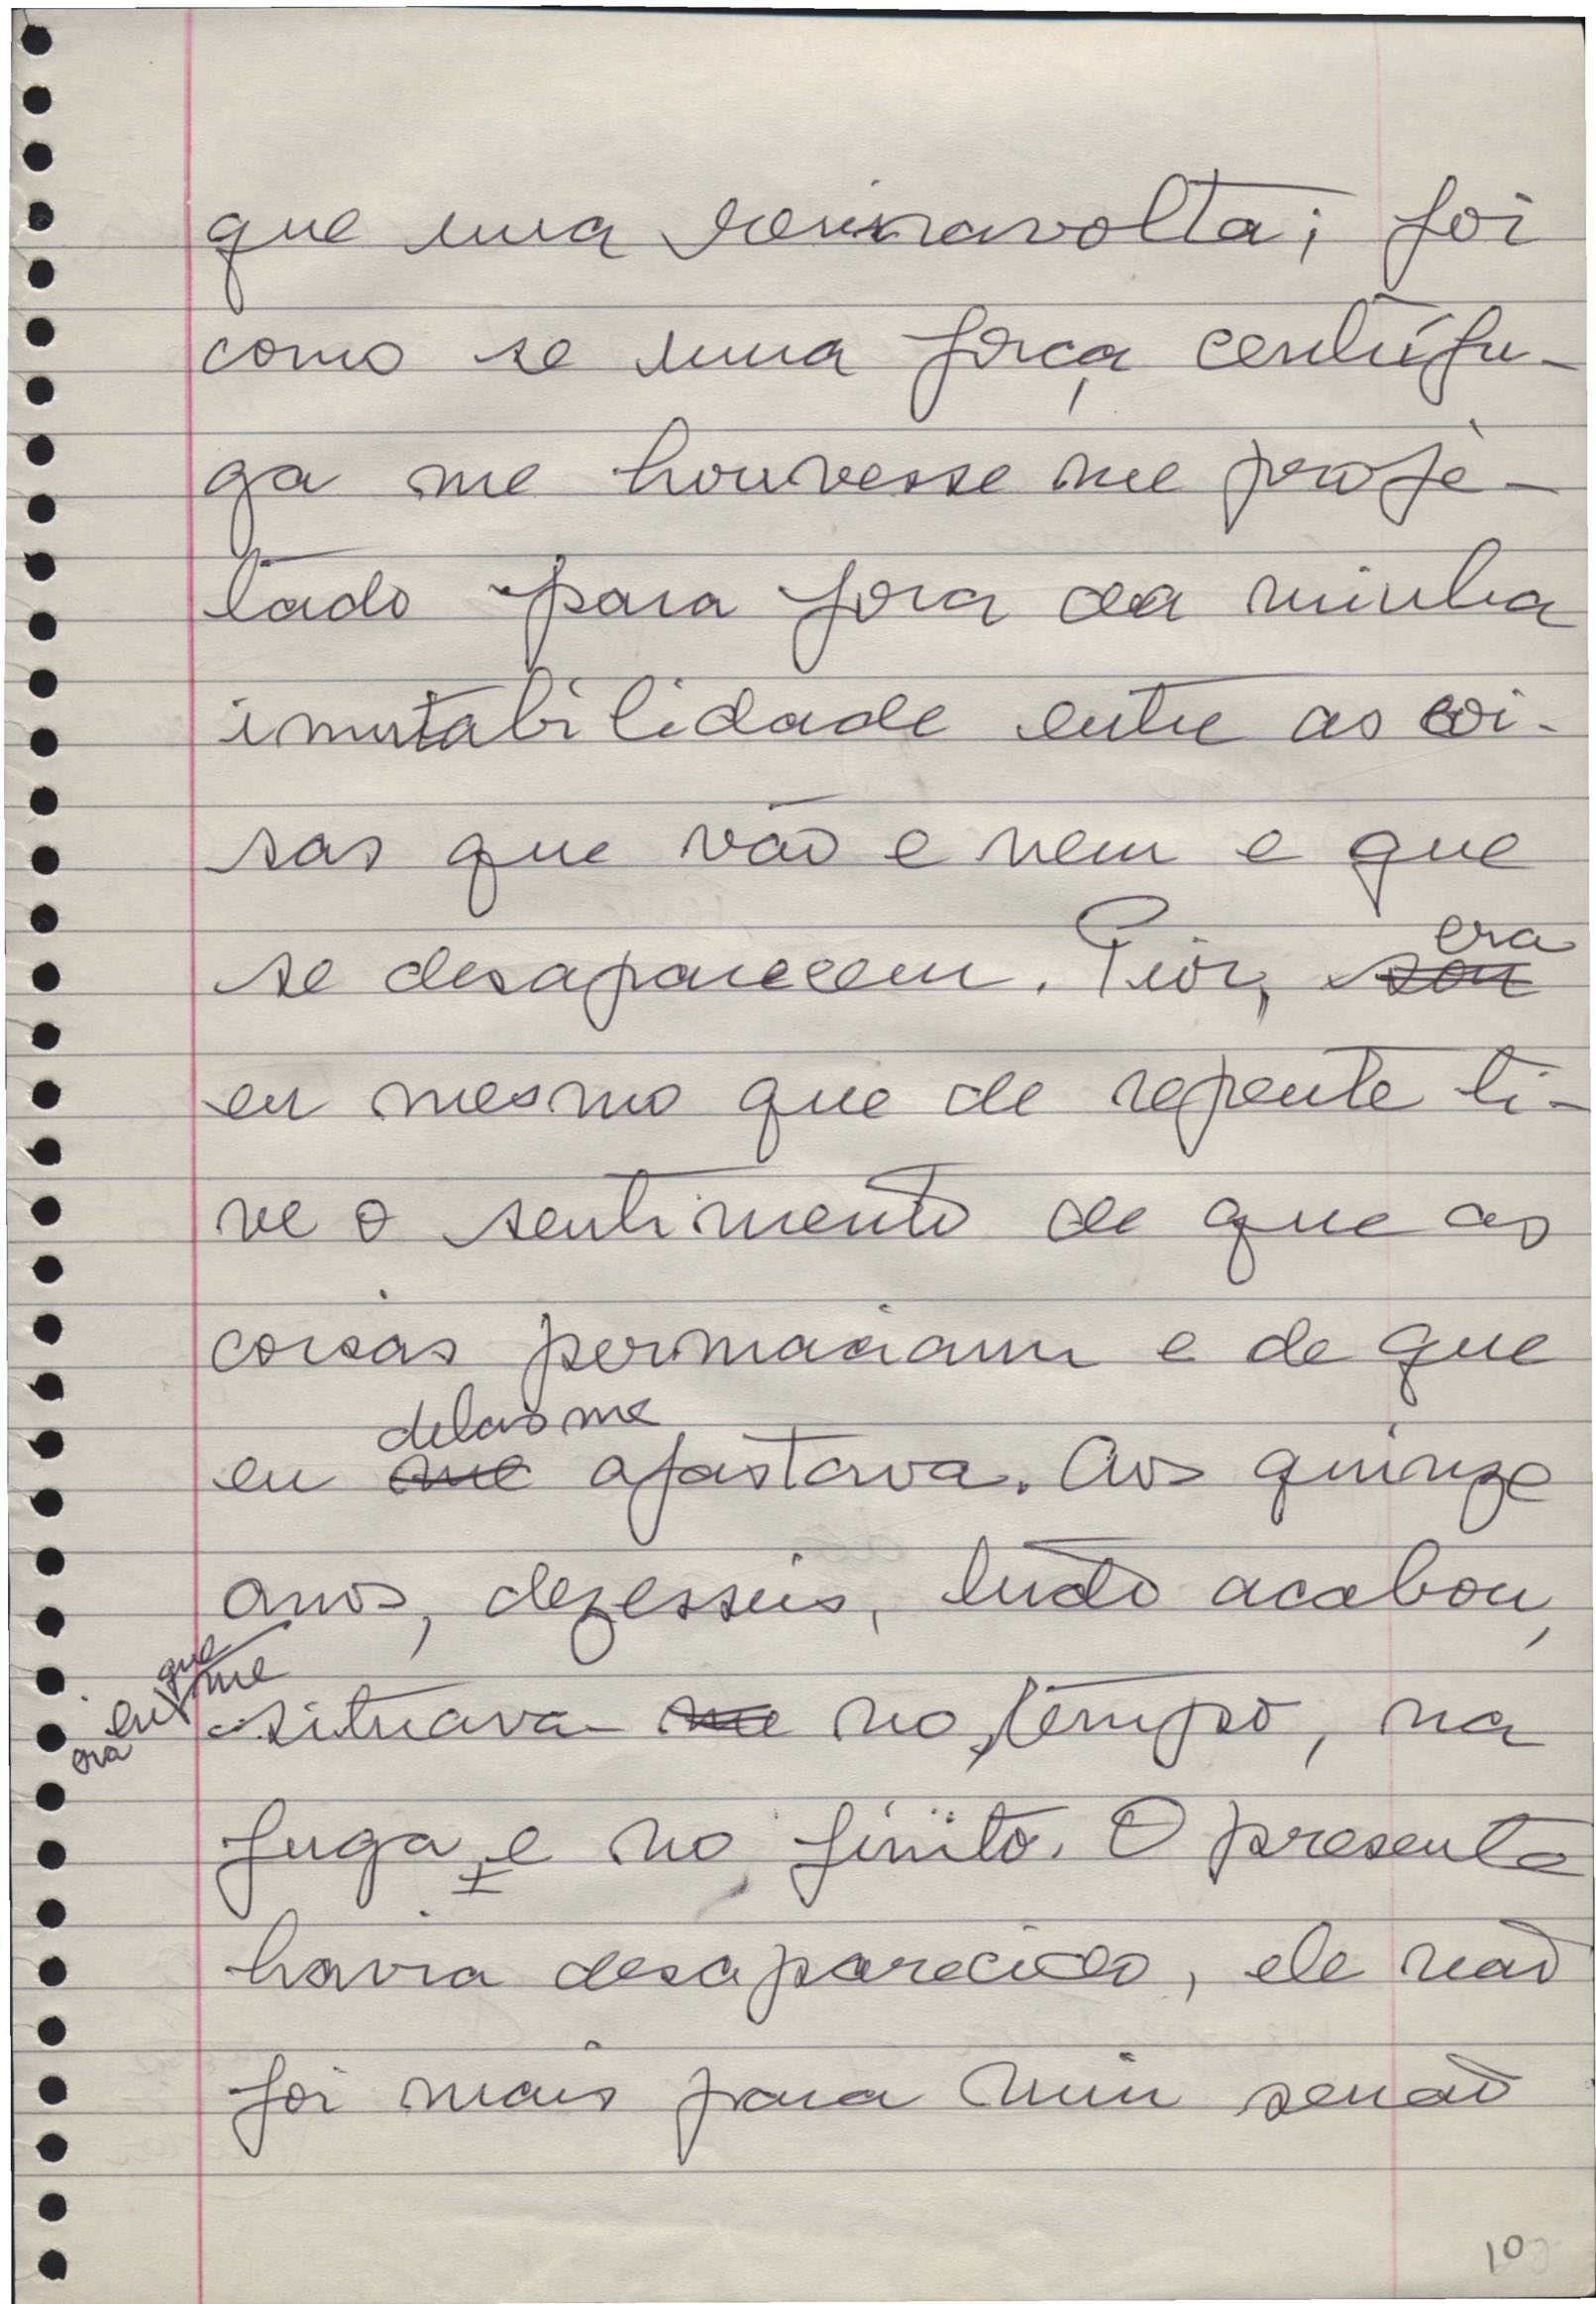 que uma reviravolta; foi
como se uma força centrífu-
ga me houvesse me proje-
tado para fora da minha
imutabilidade entre as coi-
sas que vão e vem e que
se desaparecem. Pior, ~~sou~~ era
eu mesmo que de repente ti-
ve o sentimento de que as
coisas permaneciam e de que
eu ~~me~~ delas me afastava. Aos quinze
anos, dezesseis, tudo acabou,
era eu que me situava ~~me~~ no tempo, na
fuga e no finito. O presente
havia desaparecido, ele não
foi mais para mim senão
10